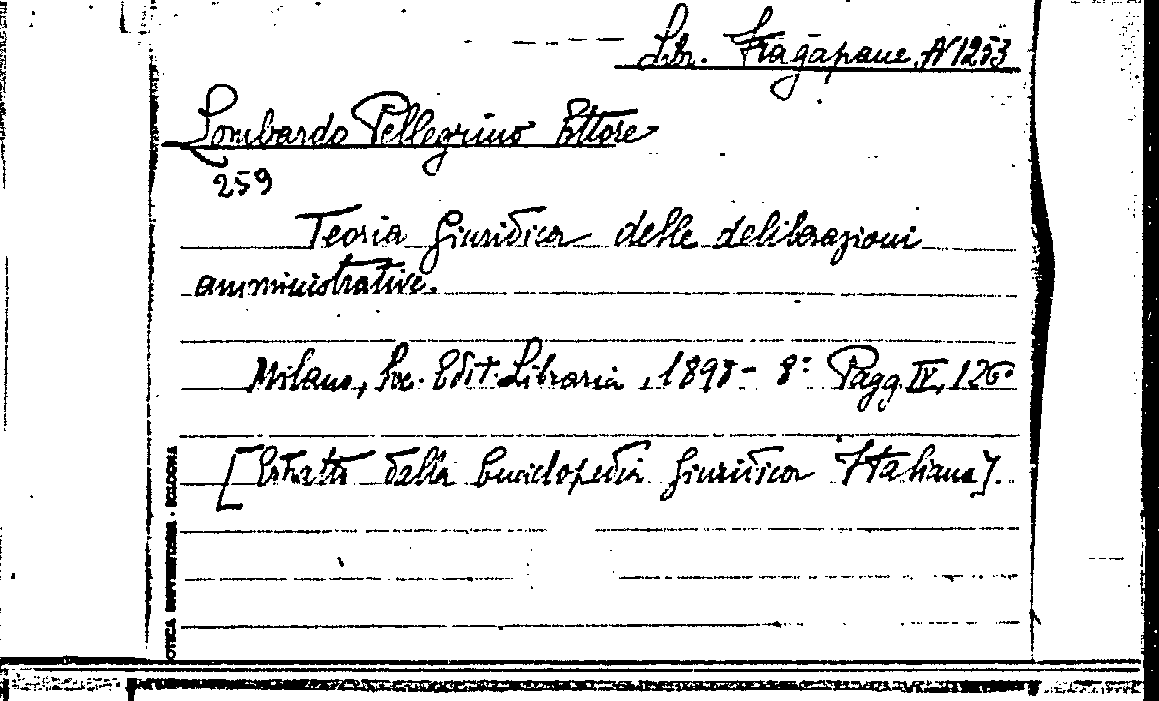 Libr. Fragapane N 1253
Lombardo Pellegrino Ettore
259
Teoria giuridica delle deliberazioni
amministrative.
Milano, Soc. Edit. Libraria, 1898 - 8° Pagg. IV, 126.
[Estratto dalla Enciclopedia Giuridica Italiana].
OTECA - BOLOGNA